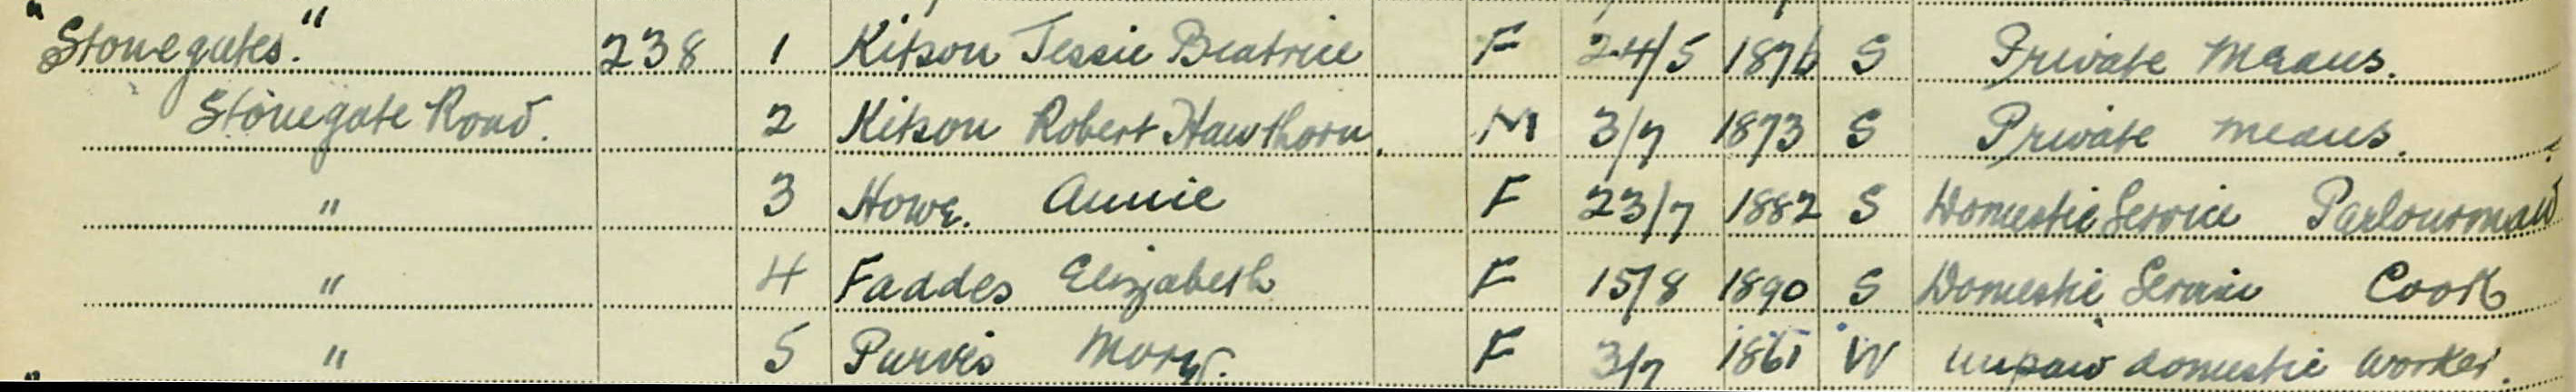 "Stonegates." 238 1 Kitson Jessie Beatrice F 24/5 1876 S Private Means.
Stonegate Road. 2 Kitson Robert Hawthorn. M 3/7 1873 S Private means.
" 3 Howe. Annie F 23/7 1882 S Domestic Service Parlourmaid
" 4 Faddes Elizabeth F 15/8 1890 S Domestic Service Cook
" 5 Purvis Mary. F 3/7 1861 W unpaid domestic worker.